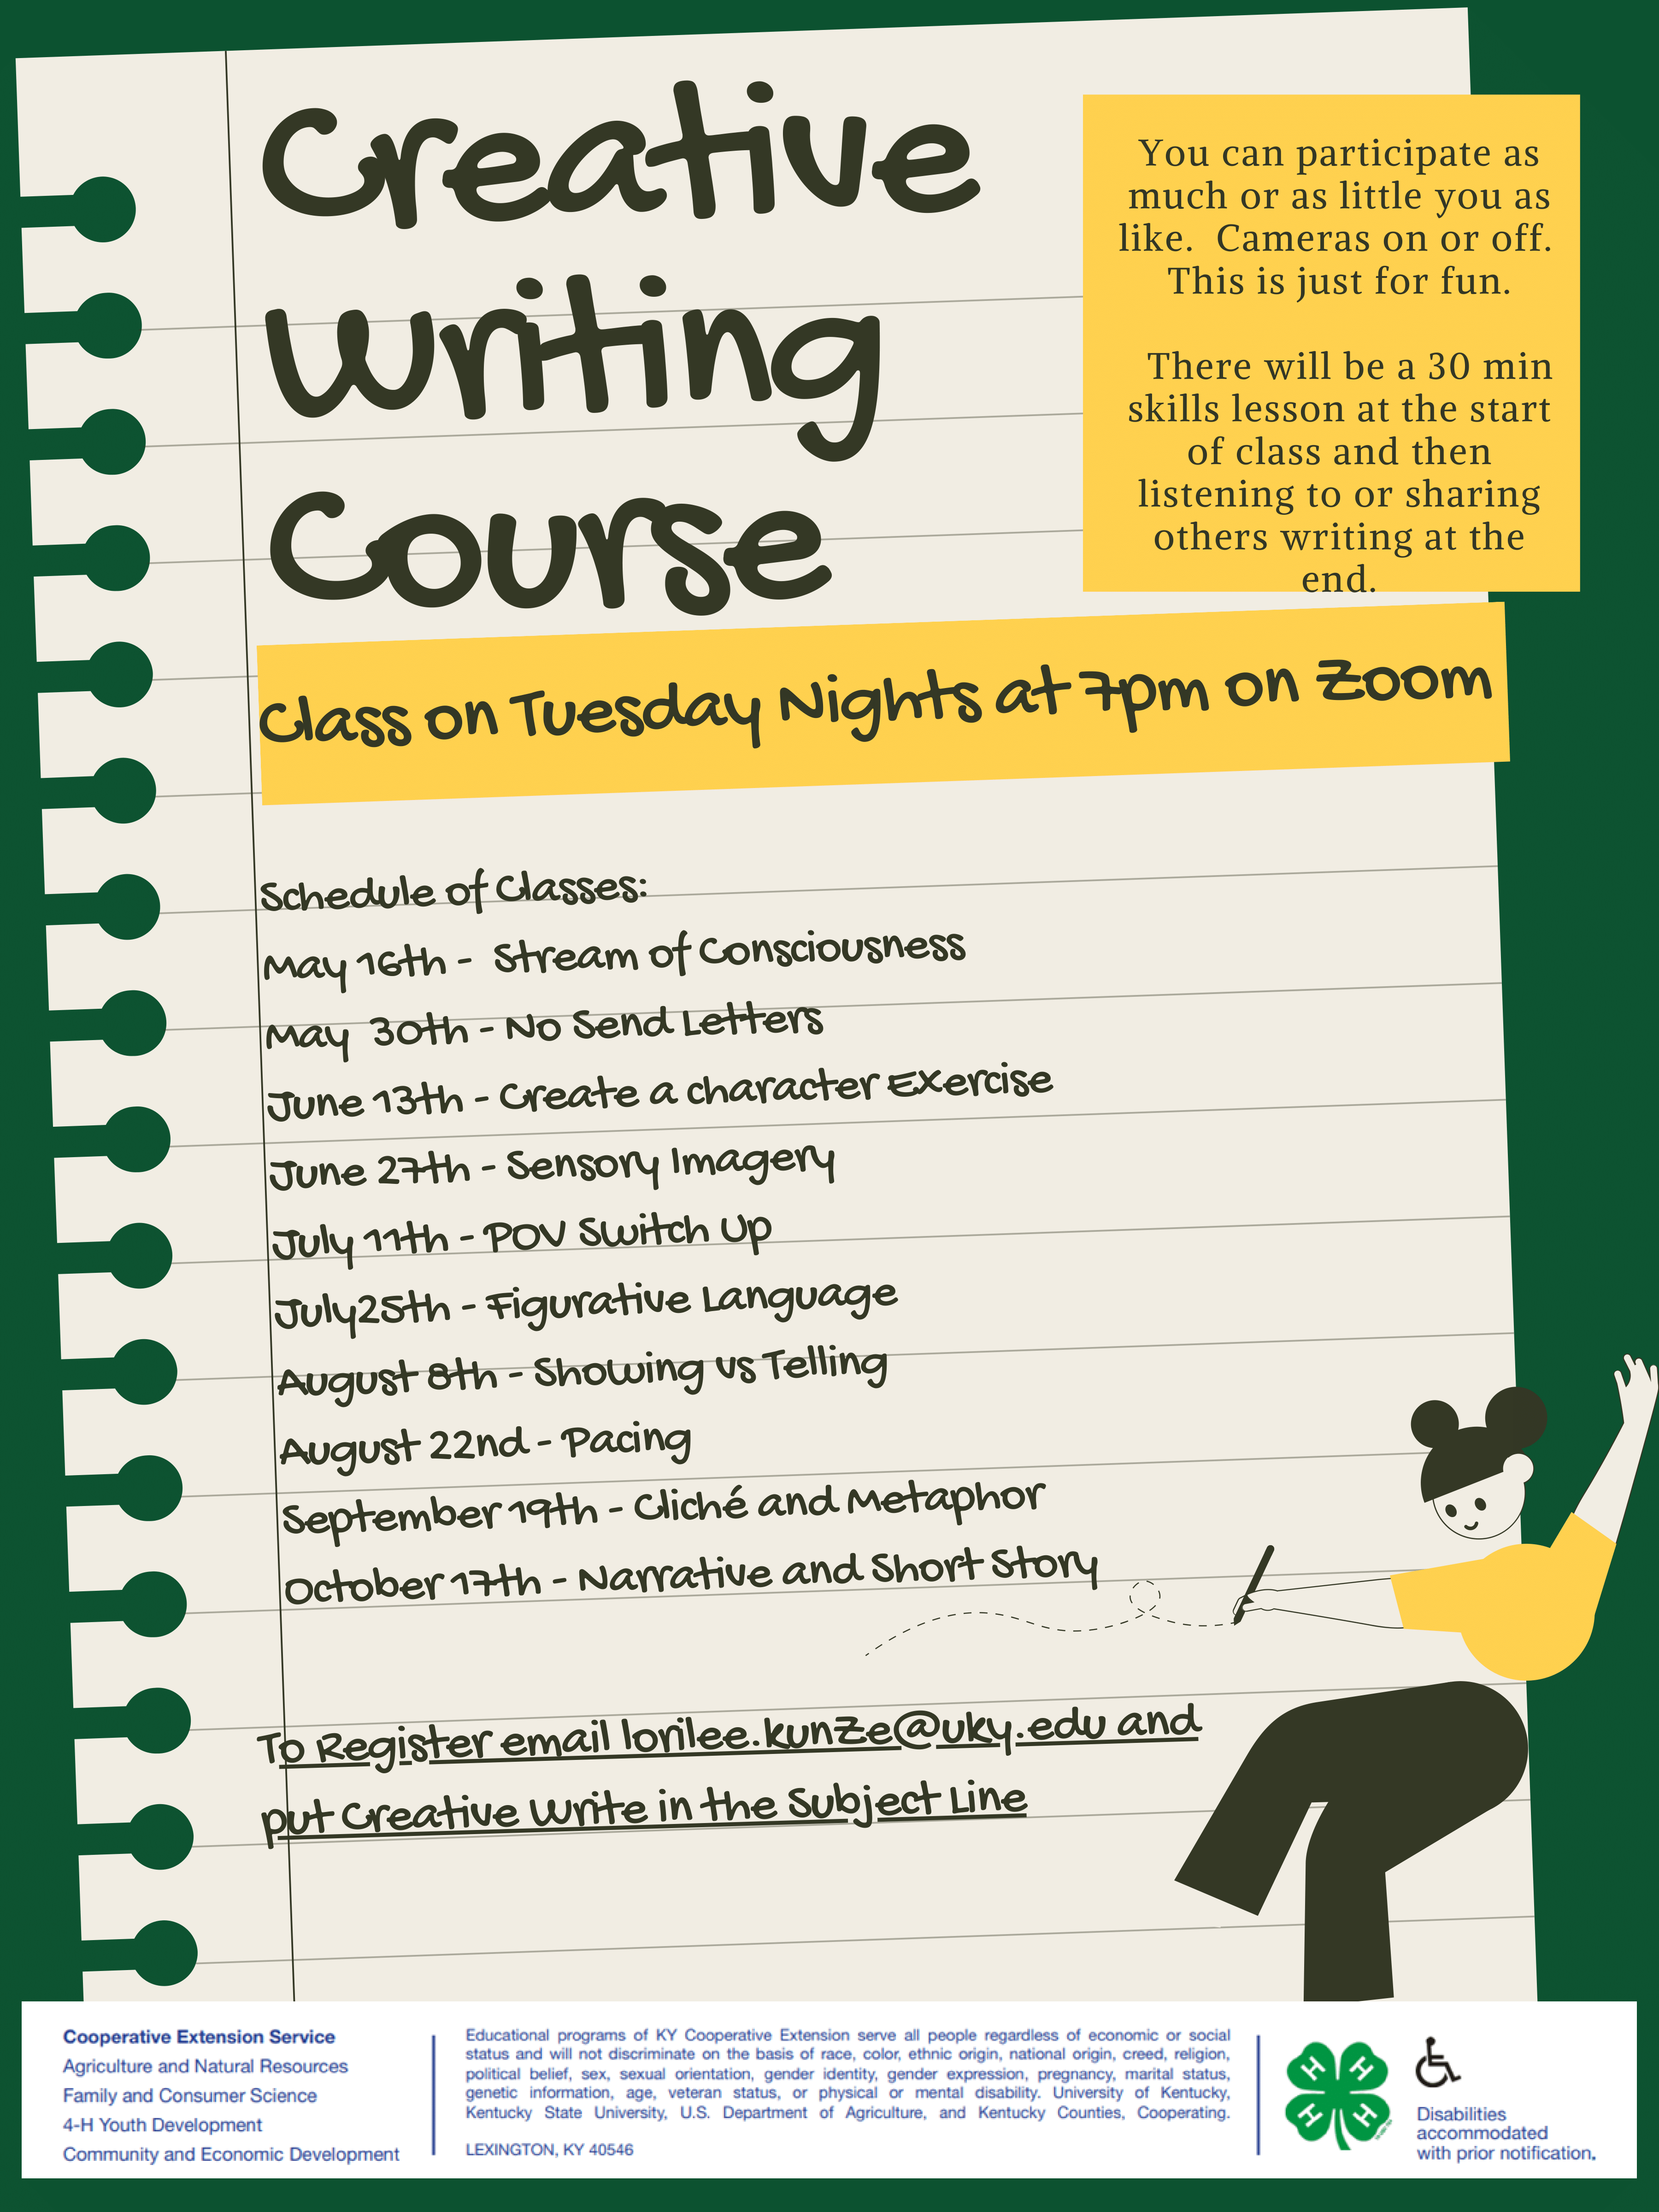 Creative
Writing
Course
You can participate as
much or as little you as
like. Cameras on or off.
This is just for fun.
There will be a 30 min
skills lesson at the start
of class and then
listening to or sharing
others writing at the
end.
Class on Tuesday Nights at 7pm on Zoom
Schedule of Classes:
May 16th - Stream of Consciousness
May 30th - No Send Letters
June 13th - Create a character Exercise
June 27th - Sensory Imagery
July 11th - POV Switch Up
July25th - Figurative Language
August 8th - Showing vs Telling
August 22nd - Pacing
September 19th - Cliché and Metaphor
October 17th - Narrative and Short Story
To Register email lorilee.kunze@uky.edu and
put Creative Write in the Subject Line
Cooperative Extension Service
Agriculture and Natural Resources
Family and Consumer Science
4-H Youth Development
Community and Economic Development
Educational programs of KY Cooperative Extension serve all people regardless of economic or social
status and will not discriminate on the basis of race, color, ethnic origin, national origin, creed, religion,
political belief, sex, sexual orientation, gender identity, gender expression, pregnancy, marital status,
genetic information, age, veteran status, or physical or mental disability. University of Kentucky,
Kentucky State University, U.S. Department of Agriculture, and Kentucky Counties, Cooperating.
LEXINGTON, KY 40546
H H
H H
Disabilities
accommodated
with prior notification.